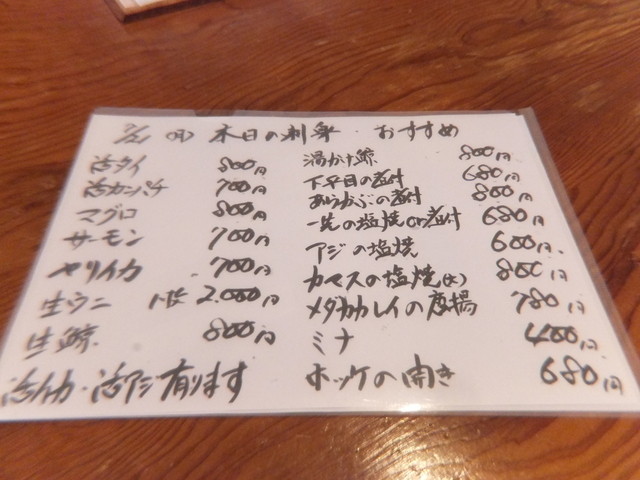 7/21 (月) 本日の刺身・おすすめ
活タイ 800円
活カンパチ 700円
マグロ 800円
サーモン 700円
ヤリイカ 700円
生ウニ 2,000円
生鯨 800円
活イカ・活アジ有ります
鯨 800円
下平目の煮付 680円
あらかぶの煮付 800円
の塩焼or煮付 680円
アジの塩焼 600円
カマスの塩焼(大) 800円
メダカカレイの唐揚 780円
ミナ 400円
ホッケの開き 680円